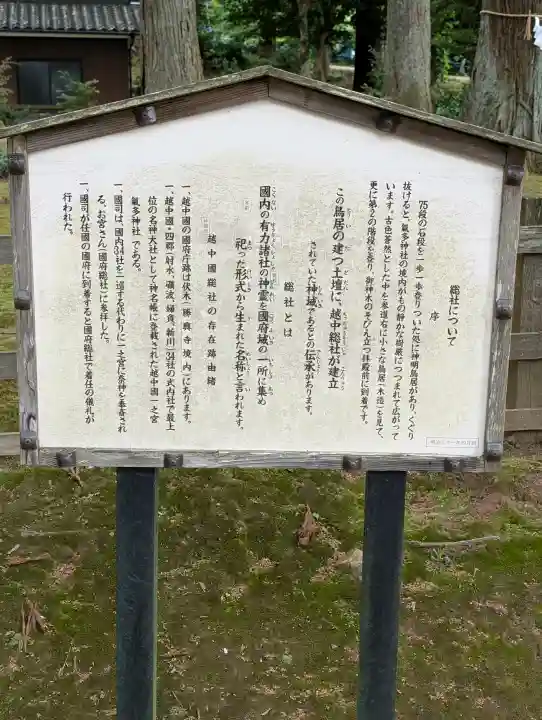 総社について
序
75段の石段を一歩一歩登りついた処に神明鳥居があり、くぐり
抜けると、氣多神社の境内がもの静かな樹厳につつまれて広がって
います。古色蒼然とした中を参道右に小さな鳥居(木造)を見て、
更に第2の階段を登り、御神木のそびえ立つ拝殿前に到着です。
この鳥居の建つ土壇に、越中総社が建立
されていた神域であるとの伝承があります。
総社とは
國内の有力諸社の神霊を國府域の一所に集め
祀った形式から生まれた名称と言われます。
越中國総社の存在跡由緒
一、越中國の國府庁跡は伏木(勝興寺境内)にあります。
一、越中國・四郡(射水、礪波、婦負、新川)34社の式内社で最上
位の名神大社として神名帳に登載された越中國一之宮
氣多神社である。
一、國司は、國内34社を一巡する代わりに一之宮に祭神を奉斎され
る、お宮さん(國府総社)に参拝した。
一、國司が任國の國府に到着すると國府総社で着任の儀礼が
行われた。